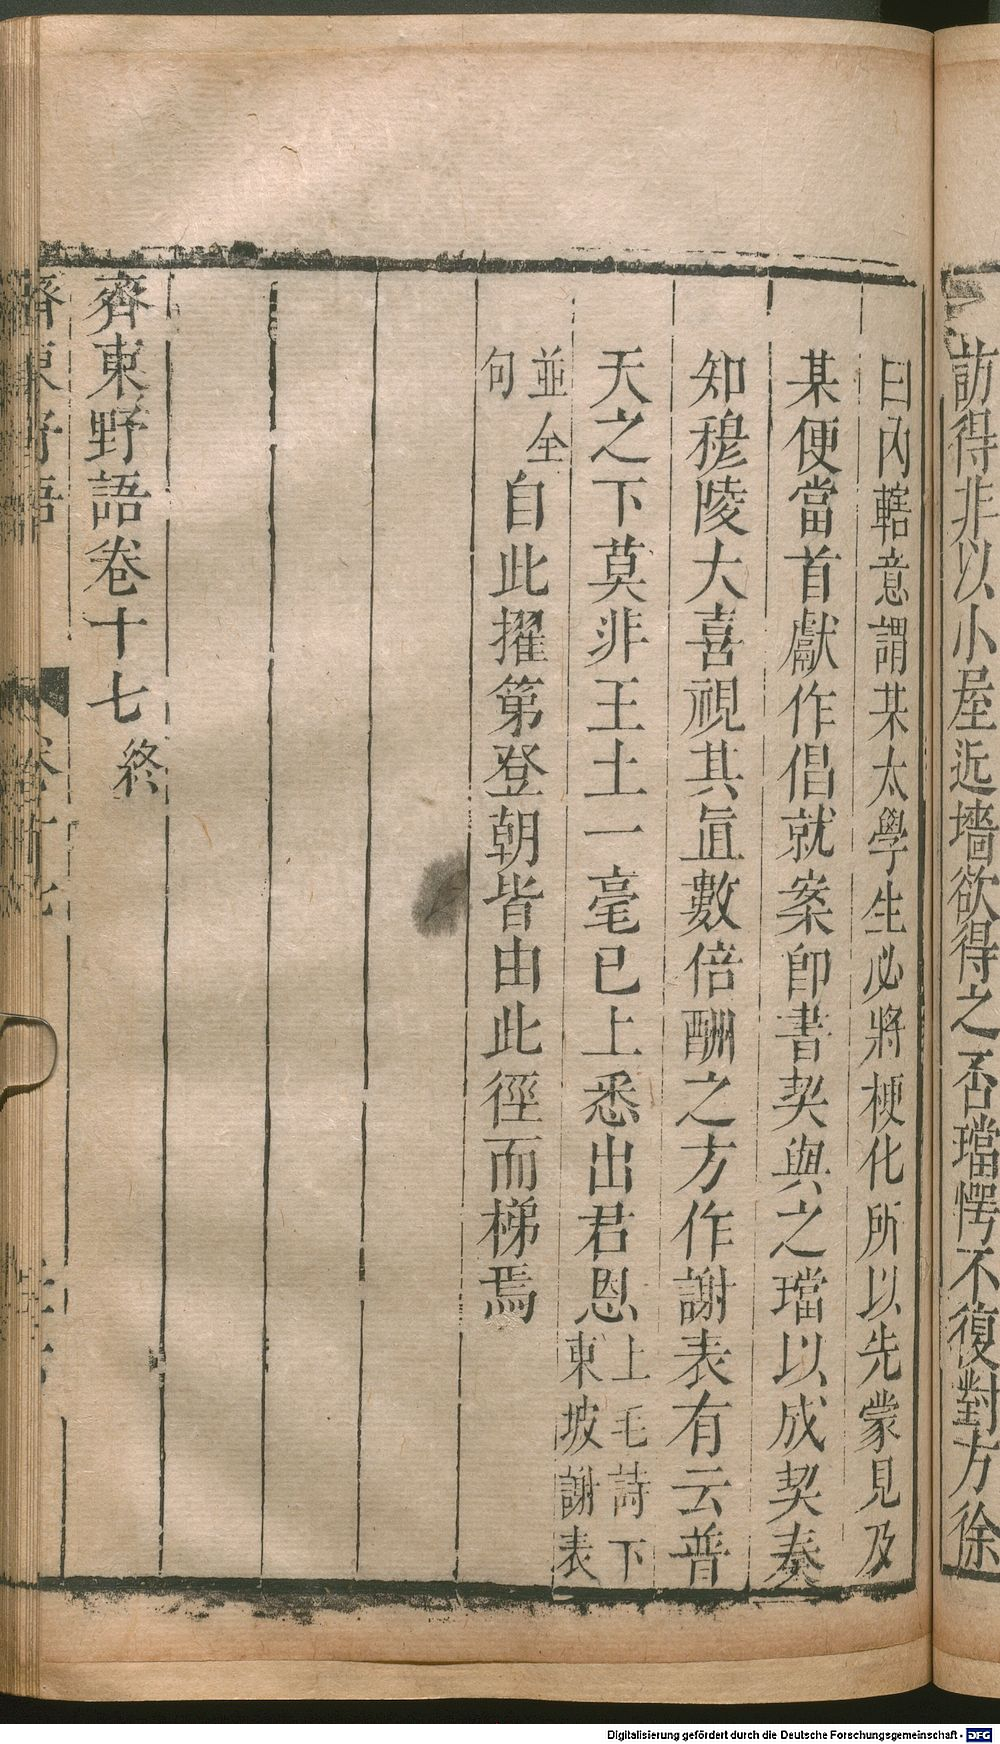 訪得非以小屋近墻欲得之否璫愕不復對方徐
曰內轄意謂某太學生必將梗化所以先蒙見及
某便當首獻作倡就案卽書契與之璫以成契奏
知穆陵大喜視其直數倍酬之方作謝表有云普
天之下莫非王土一毫已上悉出君恩上毛詩下東坡謝表
並全句自此擢第登朝皆由此徑而梯焉
齊東野語卷十七終
齊東野語 卷十七
Digitalisierung gefördert durch die Deutsche Forschungsgemeinschaft - DFG